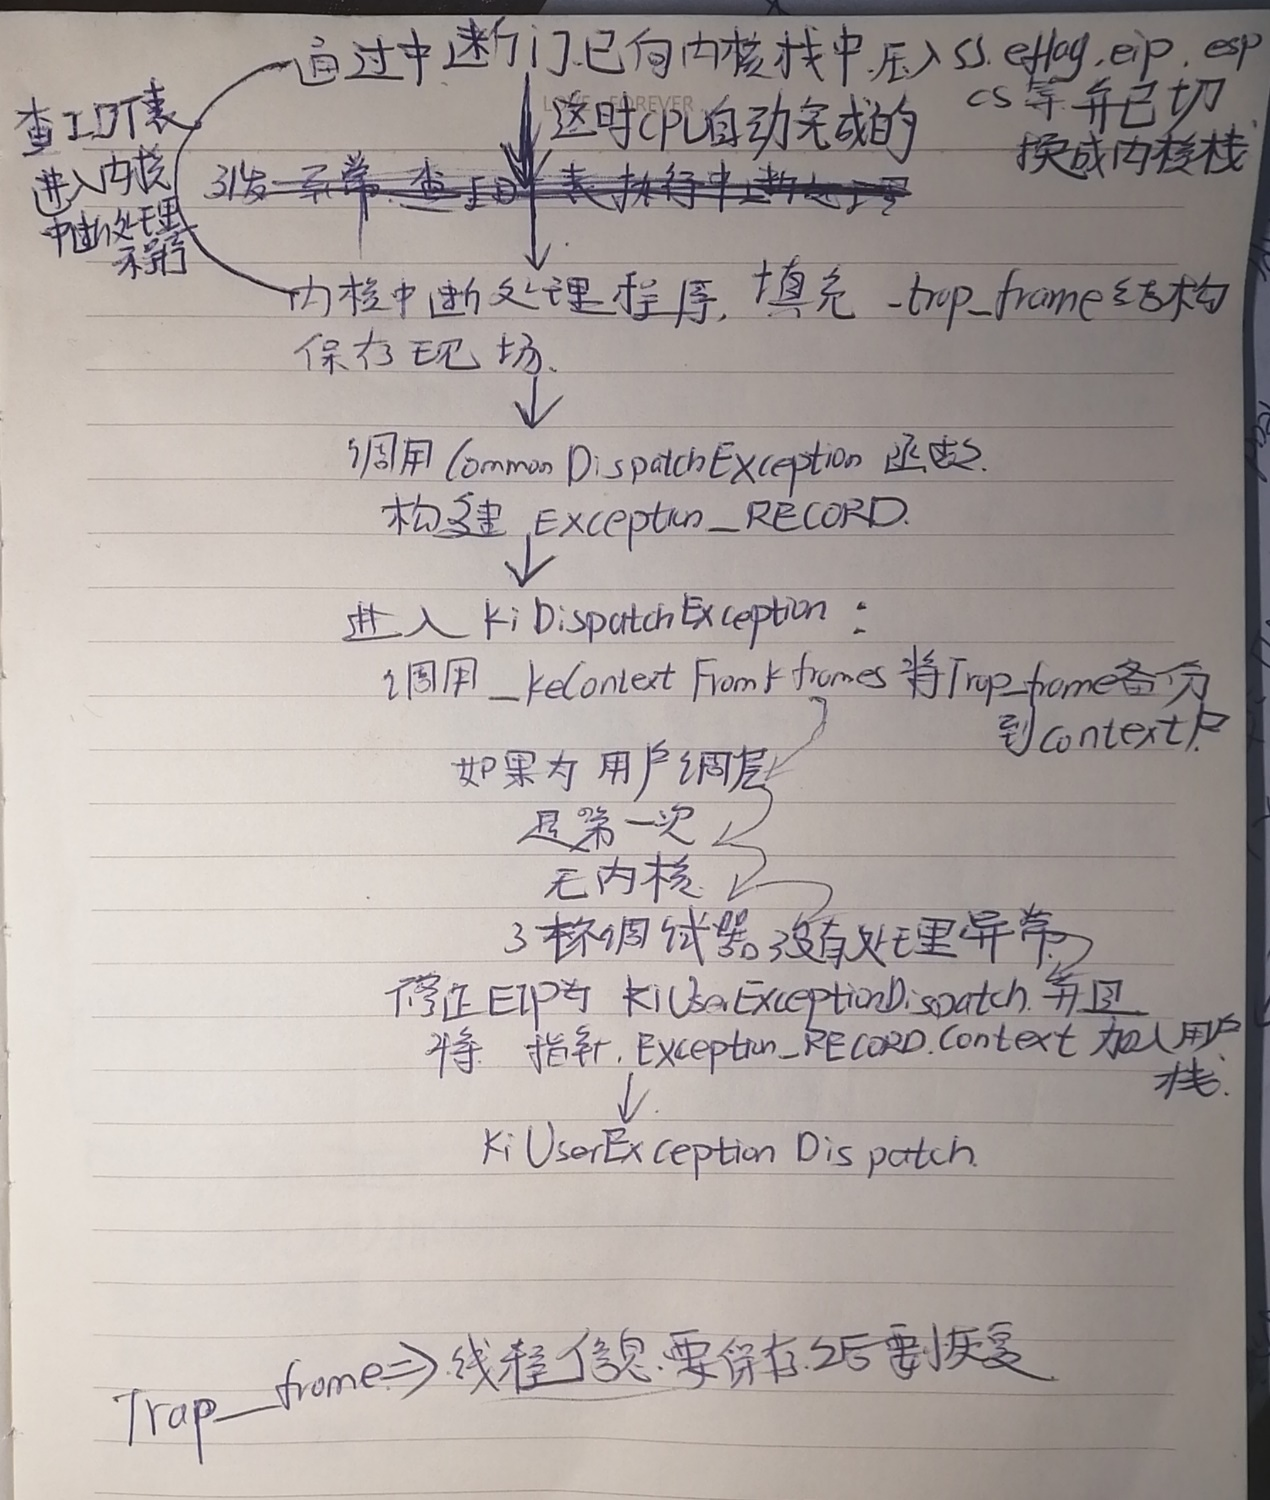 通过中断门已向内核栈中压入ss.eflag.eip.esp
cs等并已切
换成内核栈
LOVE FOREVER
这时CPU自动完成的
查IDT表
进入内核
中断处理
引发异常.查IDT表执行中断处理
内核中断处理程序,填充_trap_frame结构
保存现场.
调用CommonDispatchException函数.
构建 Exception_RECORD.
进入 KiDispatchException:
调用_KeContextFromKframes将Trap_frame备份
到context中
如果为用户调层
是第一次
无内核
3环调试器没有处理异常
修正EIP为 KiUserExceptionDispatch.并且
将 指针.Exception_RECORD.Context 加入用户
栈.
KiUserExceptionDispatch
Trap_frame=>线程信息.要保存.之后要恢复